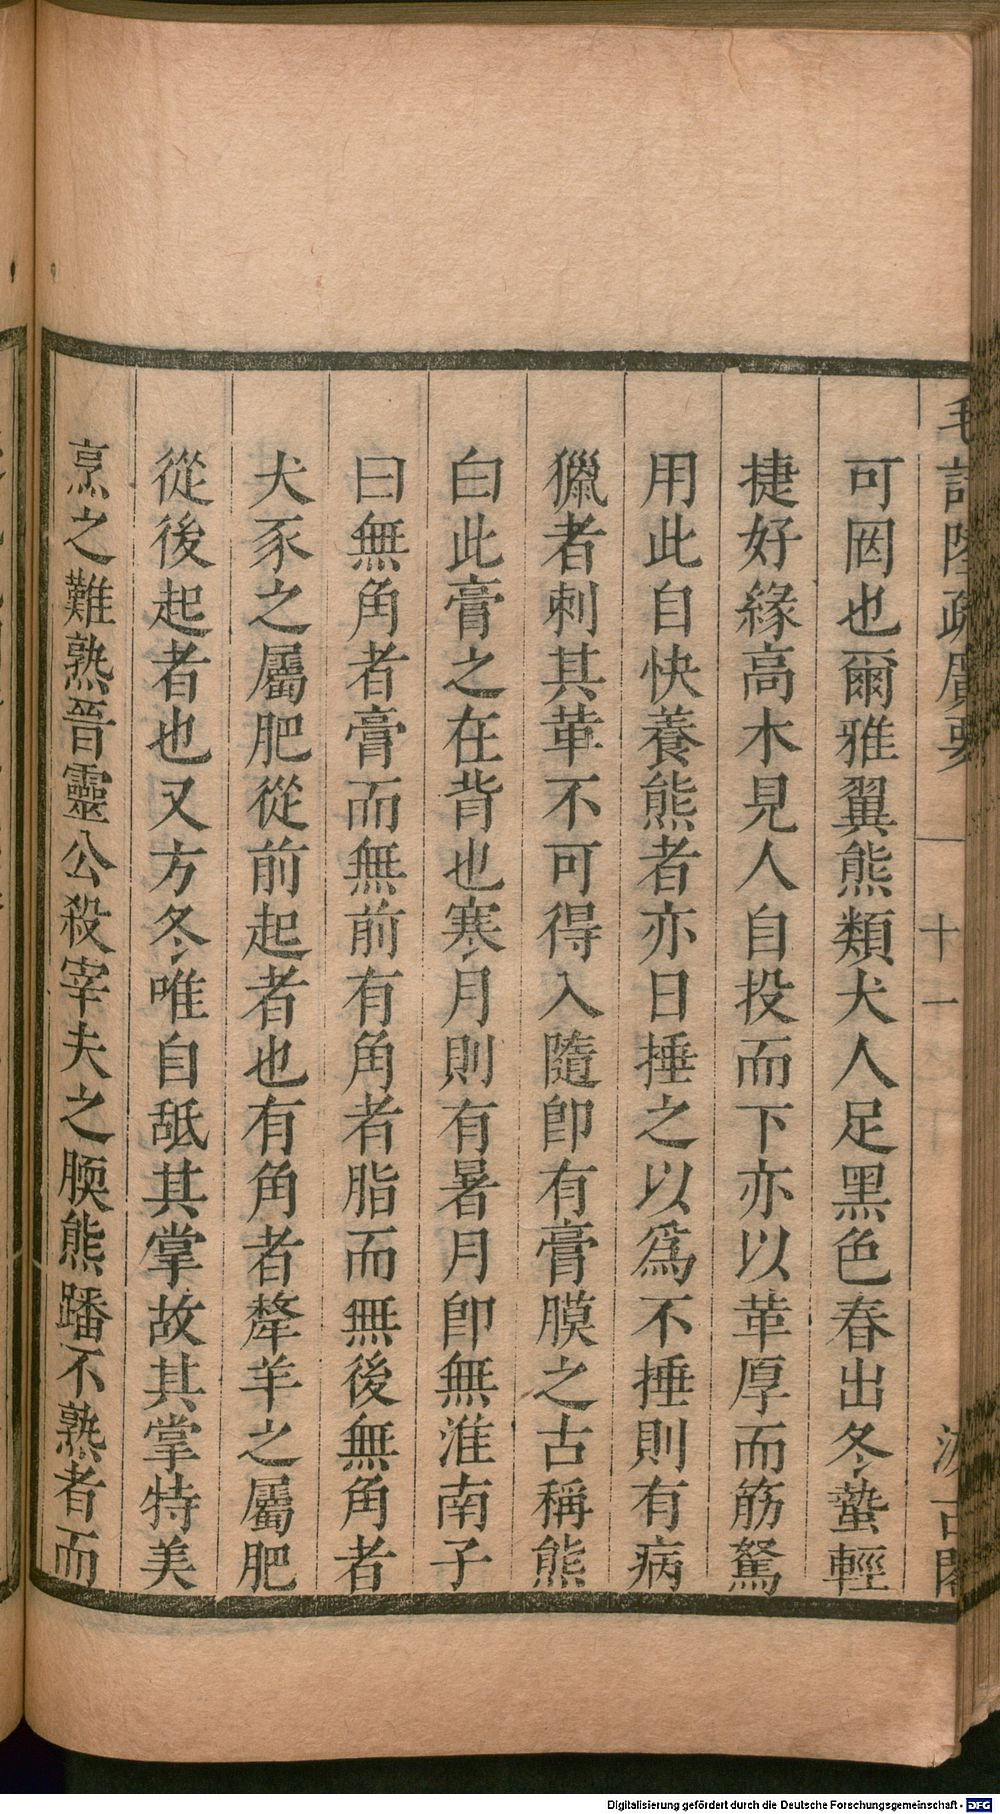 毛詩陸疏廣要
十一
汲古閣
可罔也爾雅翼熊類犬人足黑色春出冬蟄輕
捷好緣高木見人自投而下亦以革厚而筋駑
用此自快養熊者亦日捶之以爲不捶則有病
獵者刺其革不可得入隨卽有膏膜之古稱熊
白此膏之在背也寒月則有暑月卽無淮南子
曰無角者膏而無前有角者脂而無後無角者
犬豕之屬肥從前起者也有角者犛羊之屬肥
從後起者也又方冬唯自舐其掌故其掌特美
烹之難熟晉靈公殺宰夫之腝熊蹯不熟者而
Digitalisierung gefördert durch die Deutsche Forschungsgemeinschaft - DFG